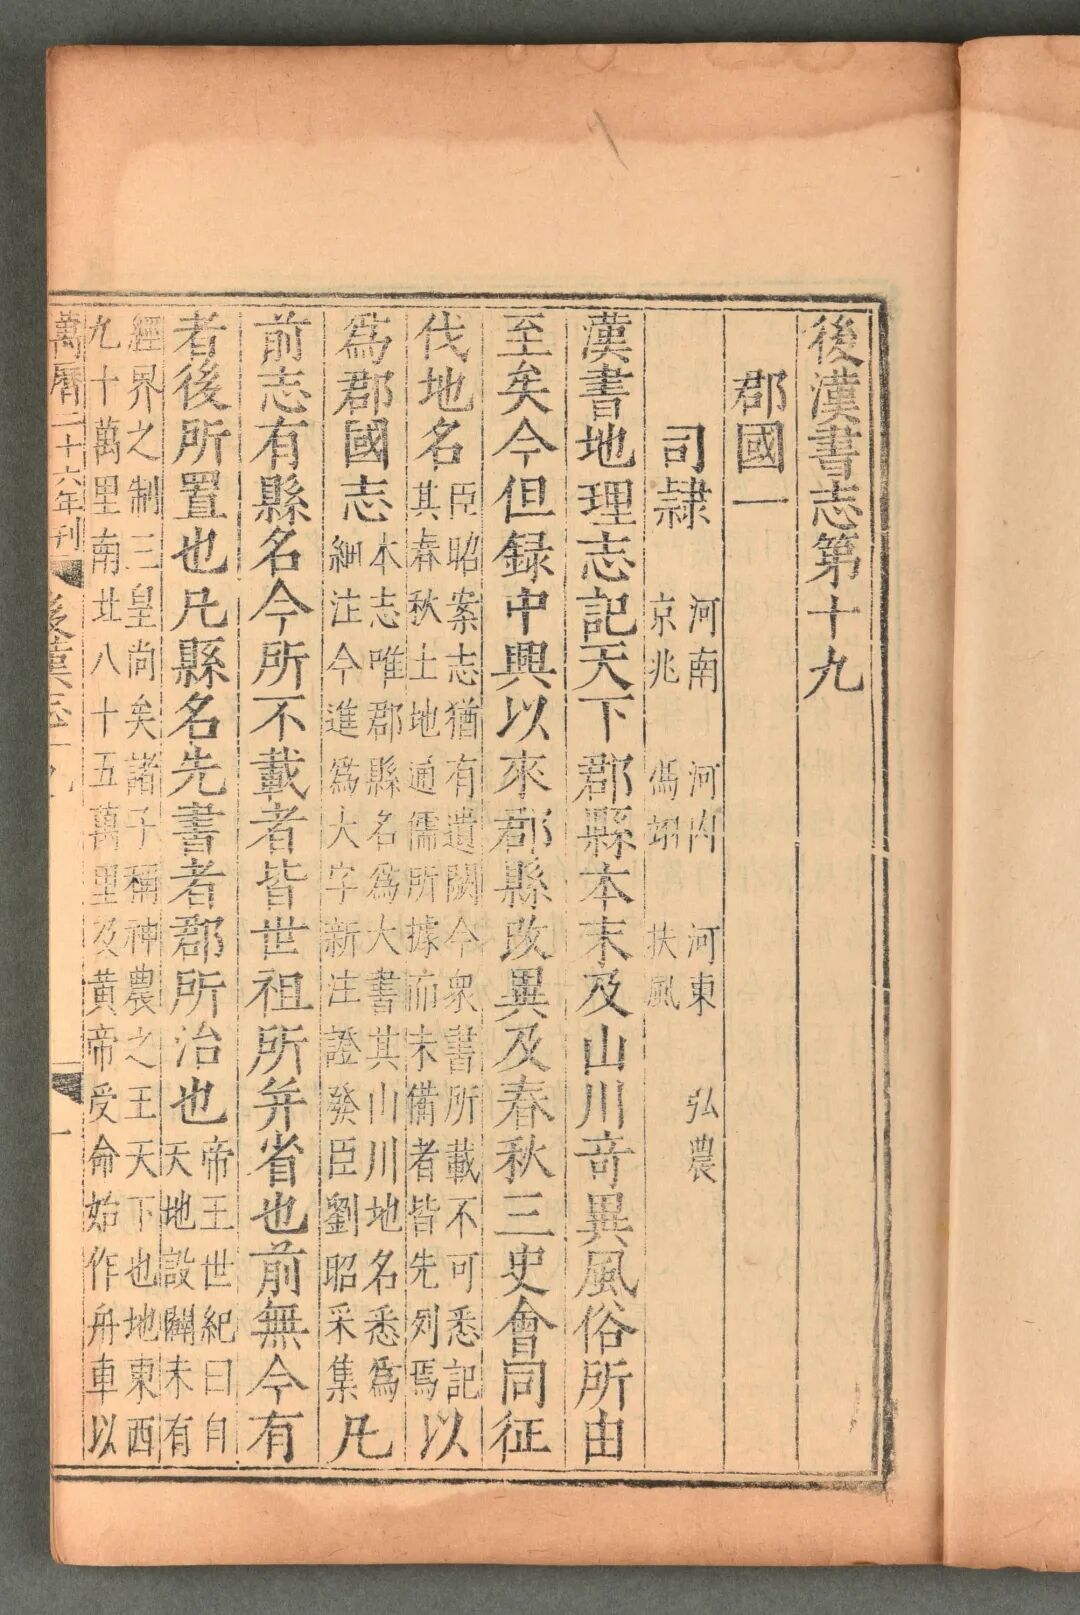 後漢書志第十九
郡國一
司隸
河南 河內 河東 弘農
京兆 馮翊 扶風
漢書地理志記天下郡縣本末及山川奇異風俗所由
至矣今但録中興以來郡縣改異及春秋三史會同征
伐地名
臣昭案志猶有遺闕今衆書所載不可悉記
其春秋土地通儒所據而未備者皆先列焉
以
爲郡國志
本志唯郡縣名爲大書其山川地名悉爲
細注今進爲大字新注證發臣劉昭采集
凡
前志有縣名今所不載者皆世祖所并省也前無今有
者後所置也凡縣名先書者郡所治也
帝王世紀曰自
天地設闢未有
經界之制三皇尚矣諸子稱神農之王天下也地東西
九十萬里南北八十五萬里及黃帝受命始作舟車以
萬曆二十六年刊
後漢志
一